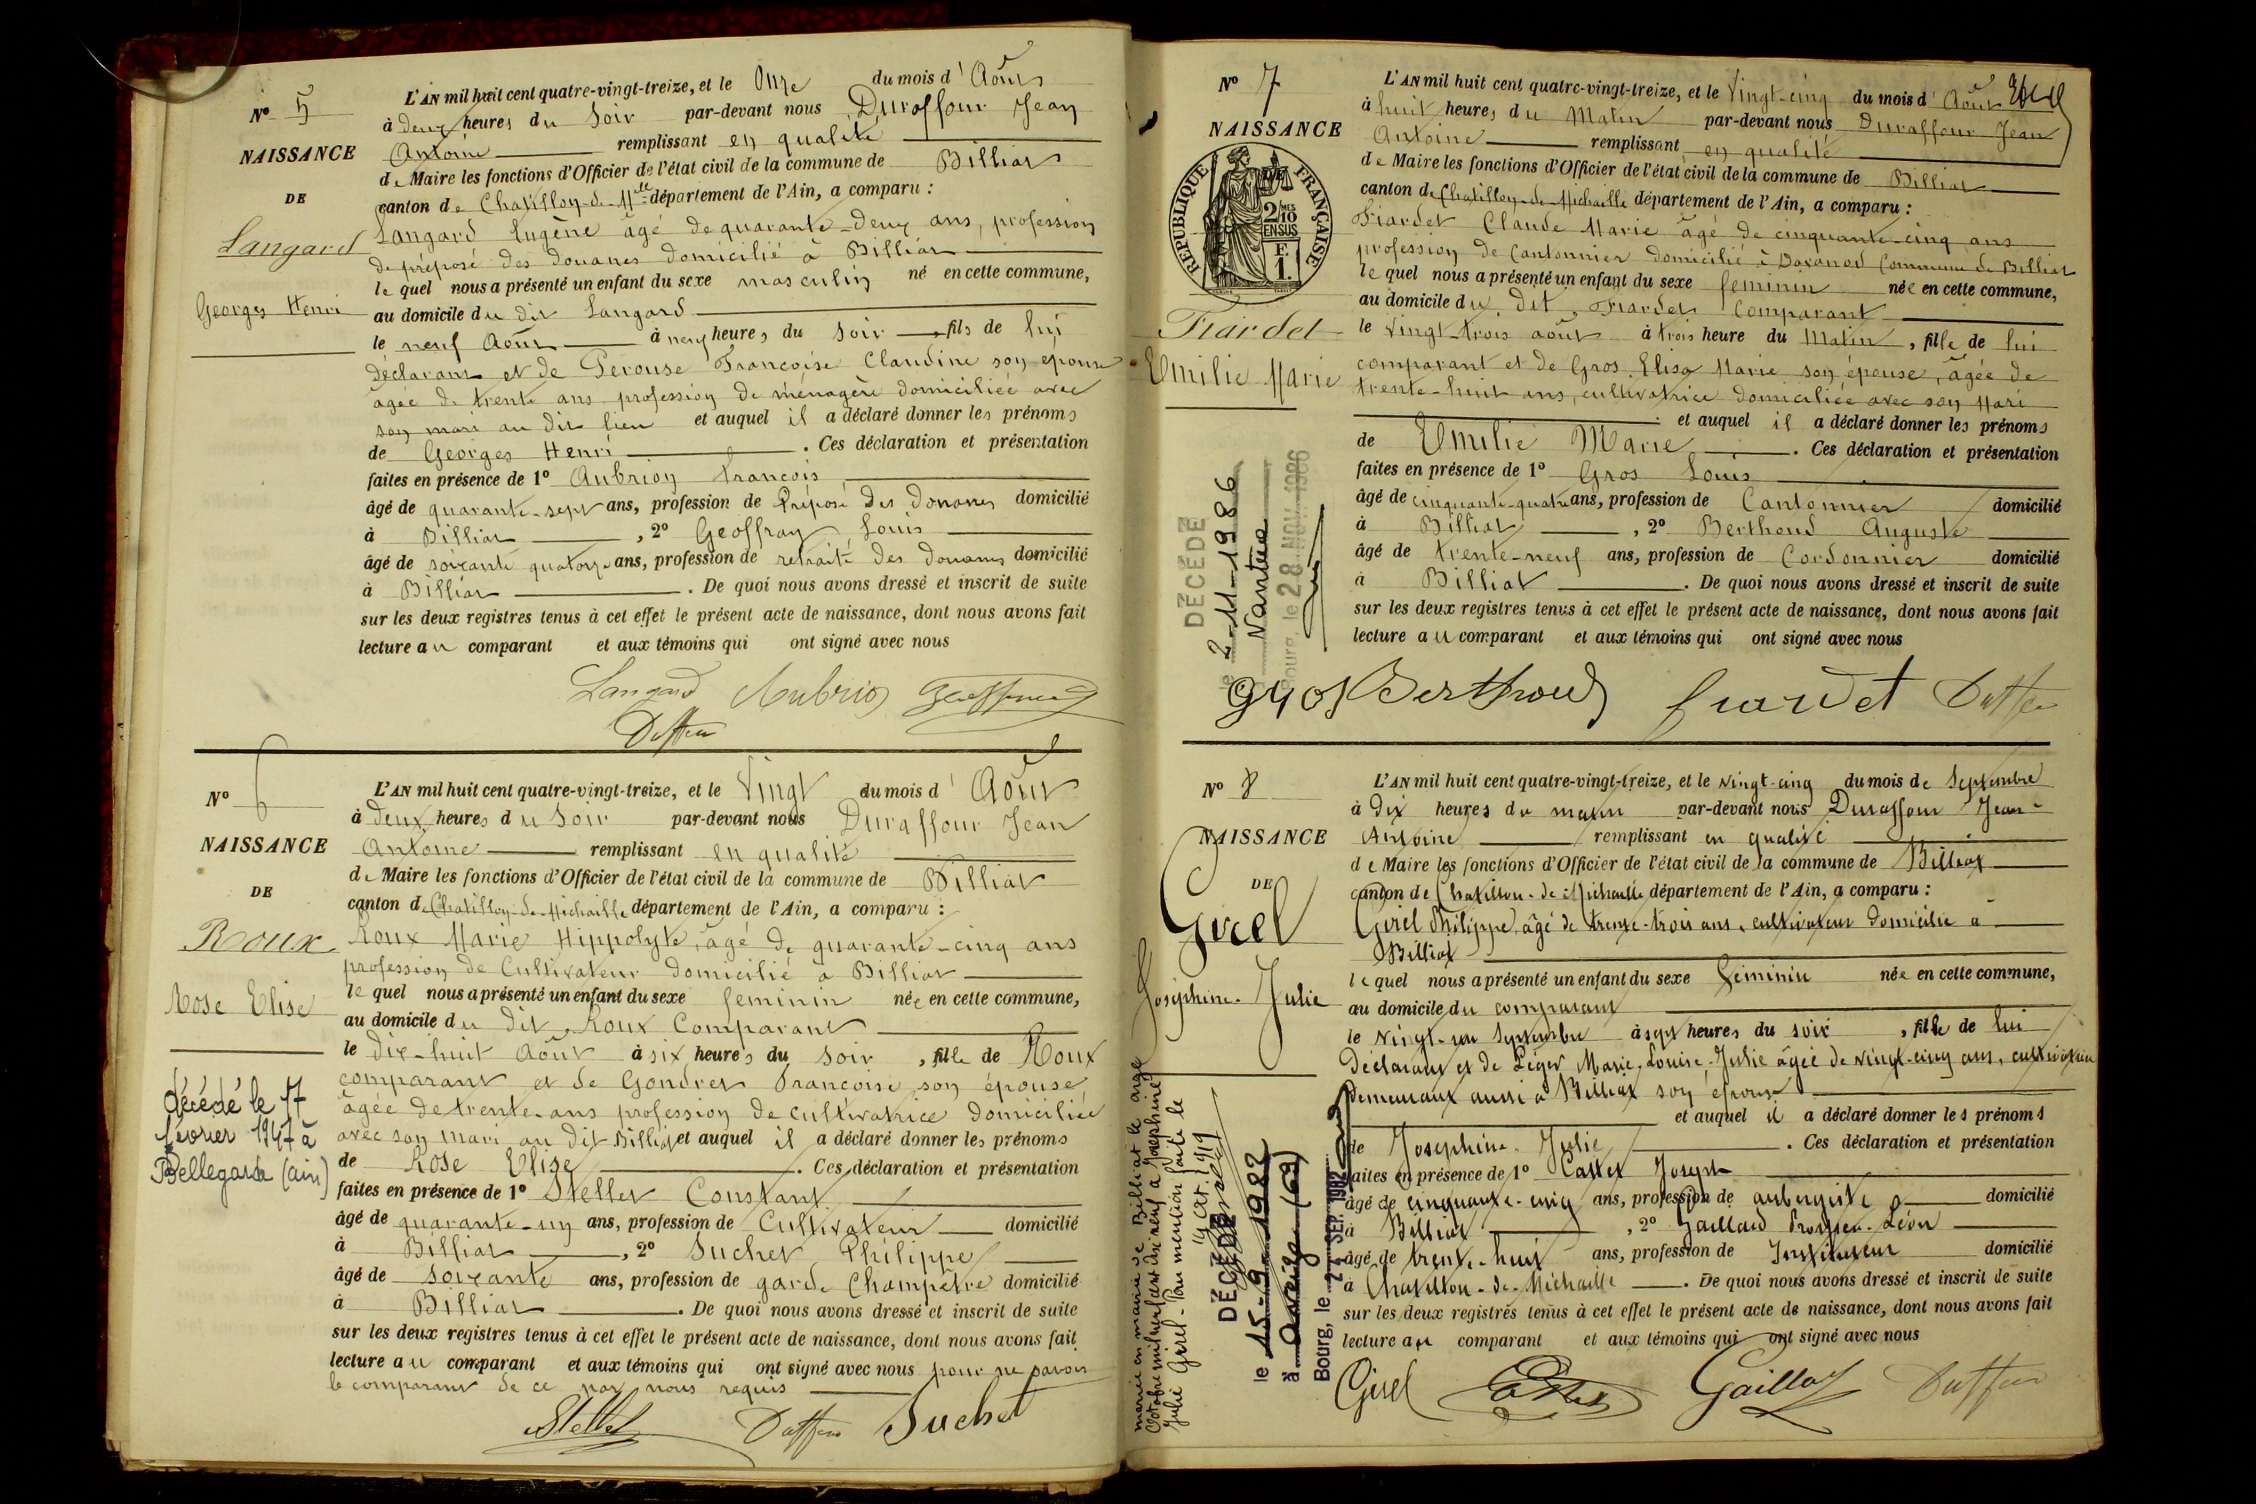 N° 5
NAISSANCE
DE
Langard
Georges Henri
L'AN mil huit cent quatre-vingt-treize, et le Onze du mois d'Août
à deux heures du Soir par-devant nous Duraffour Jean
Antoine remplissant en qualité
de Maire les fonctions d'Officier de l'état civil de la commune de Billiat
canton de Chatillon-de-Mlle département de l'Ain, a comparu :
Langard Eugène âgé de quarante-deux ans, profession
de préposé des douanes domicilié à Billiat
le quel nous a présenté un enfant du sexe masculin né en cette commune,
au domicile du dit Langard
le neuf Août à neuf heures du soir fils de lui
déclarant et de Perouse Françoise Claudine son épouse
âgée de trente ans profession de ménagère domiciliée avec
son mari au dit lieu et auquel il a déclaré donner les prénoms
de Georges Henri . Ces déclaration et présentation
faites en présence de 1° Aubrion François
âgé de quarante-sept ans, profession de Préposé des douanes domicilié
à Billiat , 2° Geoffray Louis
âgé de soixante quatorze ans, profession de retraité des douanes domicilié
à Billiat . De quoi nous avons dressé et inscrit de suite
sur les deux registres tenus à cet effet le présent acte de naissance, dont nous avons fait
lecture au comparant et aux témoins qui ont signé avec nous
Langard Aubrion Geoffray
N° 6
NAISSANCE
DE
Roux
Rose Elise
décédé le 17
février 1947 à
Bellegarde (ain)
L'AN mil huit cent quatre-vingt-treize, et le Vingt du mois d'Août
à deux heures du Soir par-devant nous Duraffour Jean
Antoine remplissant en qualité
de Maire les fonctions d'Officier de l'état civil de la commune de Billiat
canton de Chatillon-de-Michaille département de l'Ain, a comparu :
Roux Marie Hippolyte, âgé de quarante-cinq ans
profession de Cultivateur domicilié à Billiat
le quel nous a présenté un enfant du sexe feminin née en cette commune,
au domicile du dit Roux Comparant
le dix-huit Août à six heures du soir , fille de Roux
comparant et de Gondret Françoise son épouse
âgée de trente-ans profession de cultivatrice domiciliée
avec son mari au dit Billiat et auquel il a déclaré donner les prénoms
de Rose Elise . Ces déclaration et présentation
faites en présence de 1° Stellet Constant
âgé de quarante-un ans, profession de Cultivateur domicilié
à Billiat , 2° Suchet Philippe
âgé de soixante ans, profession de garde Champêtre domicilié
à Billiat . De quoi nous avons dressé et inscrit de suite
sur les deux registres tenus à cet effet le présent acte de naissance, dont nous avons fait
lecture au comparant et aux témoins qui ont signé avec nous pour ne savoir
le comparant de ce par nous requis
Stellet Suchet
N° 7
NAISSANCE
RÉPUBLIQUE FRANÇAISE
2/10 EN SUS
F. 1.
Fiardet
Emilie Marie
DÉCÉDÉ
le 2-11-1986
Nantua
Bourg, le 28 NOV. 1986
L'AN mil huit cent quatre-vingt-treize, et le Vingt-cinq du mois d'Août
à huit heures du Matin par-devant nous Duraffour Jean
Antoine remplissant en qualité
de Maire les fonctions d'Officier de l'état civil de la commune de Billiat
canton de Chatillon-de-Michaille département de l'Ain, a comparu :
Fiardet Claude Marie âgé de cinquante-cinq ans
profession de Cantonnier domicilié à Davanod Commune de Billiat
le quel nous a présenté un enfant du sexe feminin née en cette commune,
au domicile du dit Fiardet Comparant
le vingt-trois août à trois heure du Matin , fille de lui
comparant et de Gros Elisa Marie son épouse, âgée de
trente-huit ans, cultivatrice domiciliée avec son Mari
et auquel il a déclaré donner les prénoms
de Emilie Marie . Ces déclaration et présentation
faites en présence de 1° Gros Louis
âgé de cinquante-quatre ans, profession de Cantonnier domicilié
à Billiat , 2° Berthoud Auguste
âgé de trente-neuf ans, profession de Cordonnier domicilié
à Billiat . De quoi nous avons dressé et inscrit de suite
sur les deux registres tenus à cet effet le présent acte de naissance, dont nous avons fait
lecture au comparant et aux témoins qui ont signé avec nous
Gros Berthoud fiardet
N° 8
NAISSANCE
DE
Girel
Joséphine-Julie
mariée en mairie de Billiat le onze
Octobre mil neuf cent dix neuf à Joséphine
Julie Girel - Pour mention faite le
14 oct. 1919
DÉCÉDÉ
le 15-9-1982
à
Bourg, le 21 SEP. 1982
L'AN mil huit cent quatre-vingt-treize, et le vingt-cinq du mois de Septembre
à dix heures du matin par-devant nous Duraffour Jean-
Antoine remplissant en qualité
de Maire les fonctions d'Officier de l'état civil de la commune de Billiat
canton de Chatillon-de-Michaille département de l'Ain, a comparu :
Girel Philippe, âgé de trente-trois ans, cultivateur domicilié à
Billiat
le quel nous a présenté un enfant du sexe féminin née en cette commune,
au domicile du comparant
le vingt-un Septembre à sept heures du soir , fille de lui
déclarant et de Léger Marie-Louise-Julie âgée de vingt-cinq ans, cultivatrice
demeurant aussi à Billiat son épouse
et auquel il a déclaré donner les prénoms
de Joséphine-Julie . Ces déclaration et présentation
faites en présence de 1° Castex Joseph
âgé de cinquante-cinq ans, profession de aubergiste domicilié
à Billiat , 2° Gaillard Prosper-Léon
âgé de trente-huit ans, profession de Instituteur domicilié
à Chatillon-de-Michaille . De quoi nous avons dressé et inscrit de suite
sur les deux registres tenus à cet effet le présent acte de naissance, dont nous avons fait
lecture au comparant et aux témoins qui ont signé avec nous
Girel Castex Gaillard